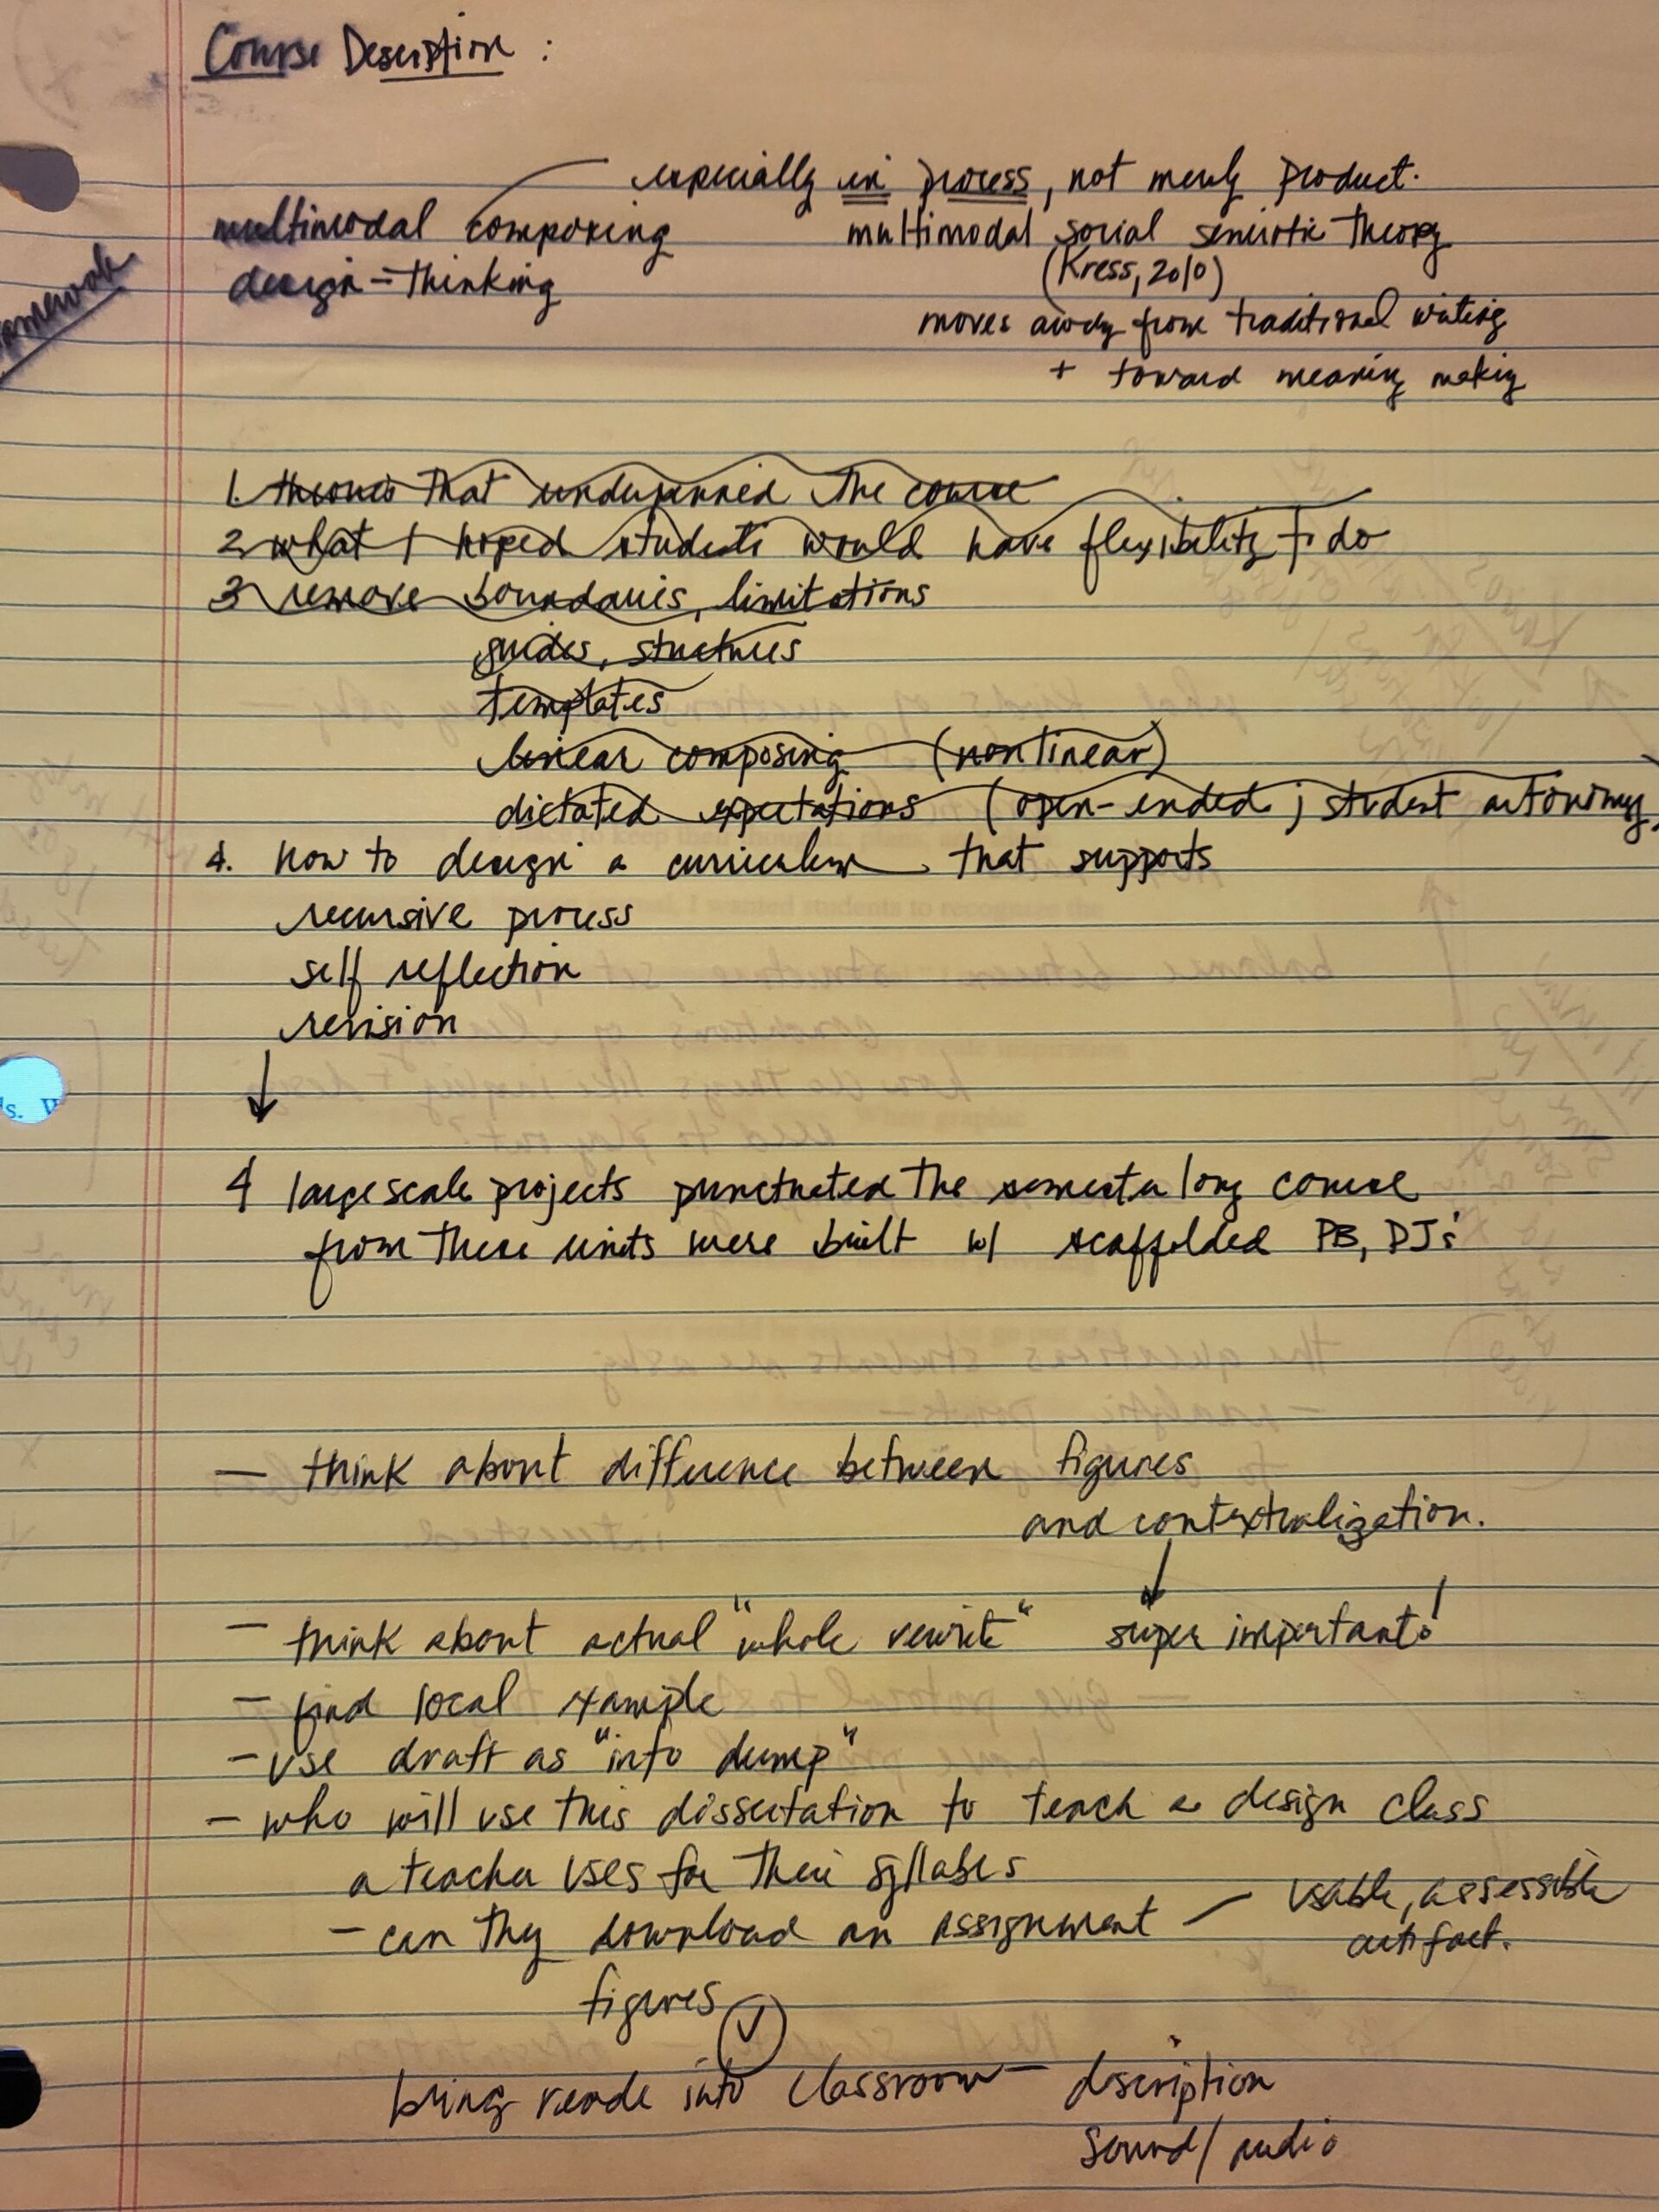 Course Description :
especially in process, not merely product.
multimodal composing
multimodal social semiotic theory
design-thinking
(Kress, 2010)
moves away from traditional writing
+ toward meaning making
1. theories that underpinned the course
2 what I hoped students would have flexibility to do
3 remove boundaries, limitations
guides, structures
templates
linear composing (nonlinear)
dictated expectations (open-ended ; student autonomy
4. how to design a curriculum that supports
recursive process
self reflection
revision
s. W
4 large scale projects punctuated the semester long course
from there units were built w/ scaffolded PB, DJs
— think about difference between figures
and contextualization.
– think about actual "whole rewrite" super important!
– find local example
– use draft as "info dump"
– who will use this dissertation to teach a design class
a teacher uses for their syllabus
– can they download an assignment – usable, assessible
artifact.
figures ✓
bring reade into classroom – description
sound/audio